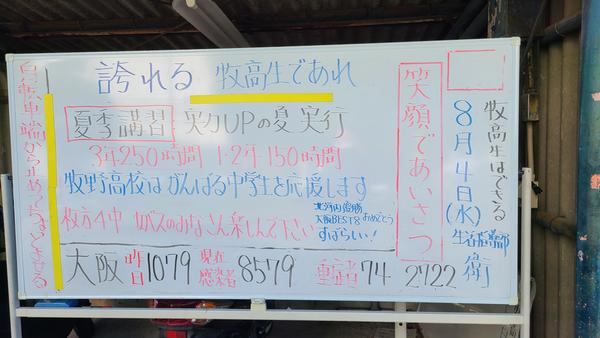 誇れる 牧高生であれ
夏季講習 実力UPの夏 実行
3年250時間 1・2年150時間
牧野高校は がんばる中学生を応援します
枚方4中 のみなさん楽しんで下さい
北河内優勝
大阪BEST8 おめでとう
すばらしい!
大阪 昨日 1079 現在感染者 8579 重症者 74 2722
笑顔であいさつ
牧高生はできる
8月4日(水)
生活指導部
衛
自転車 端から